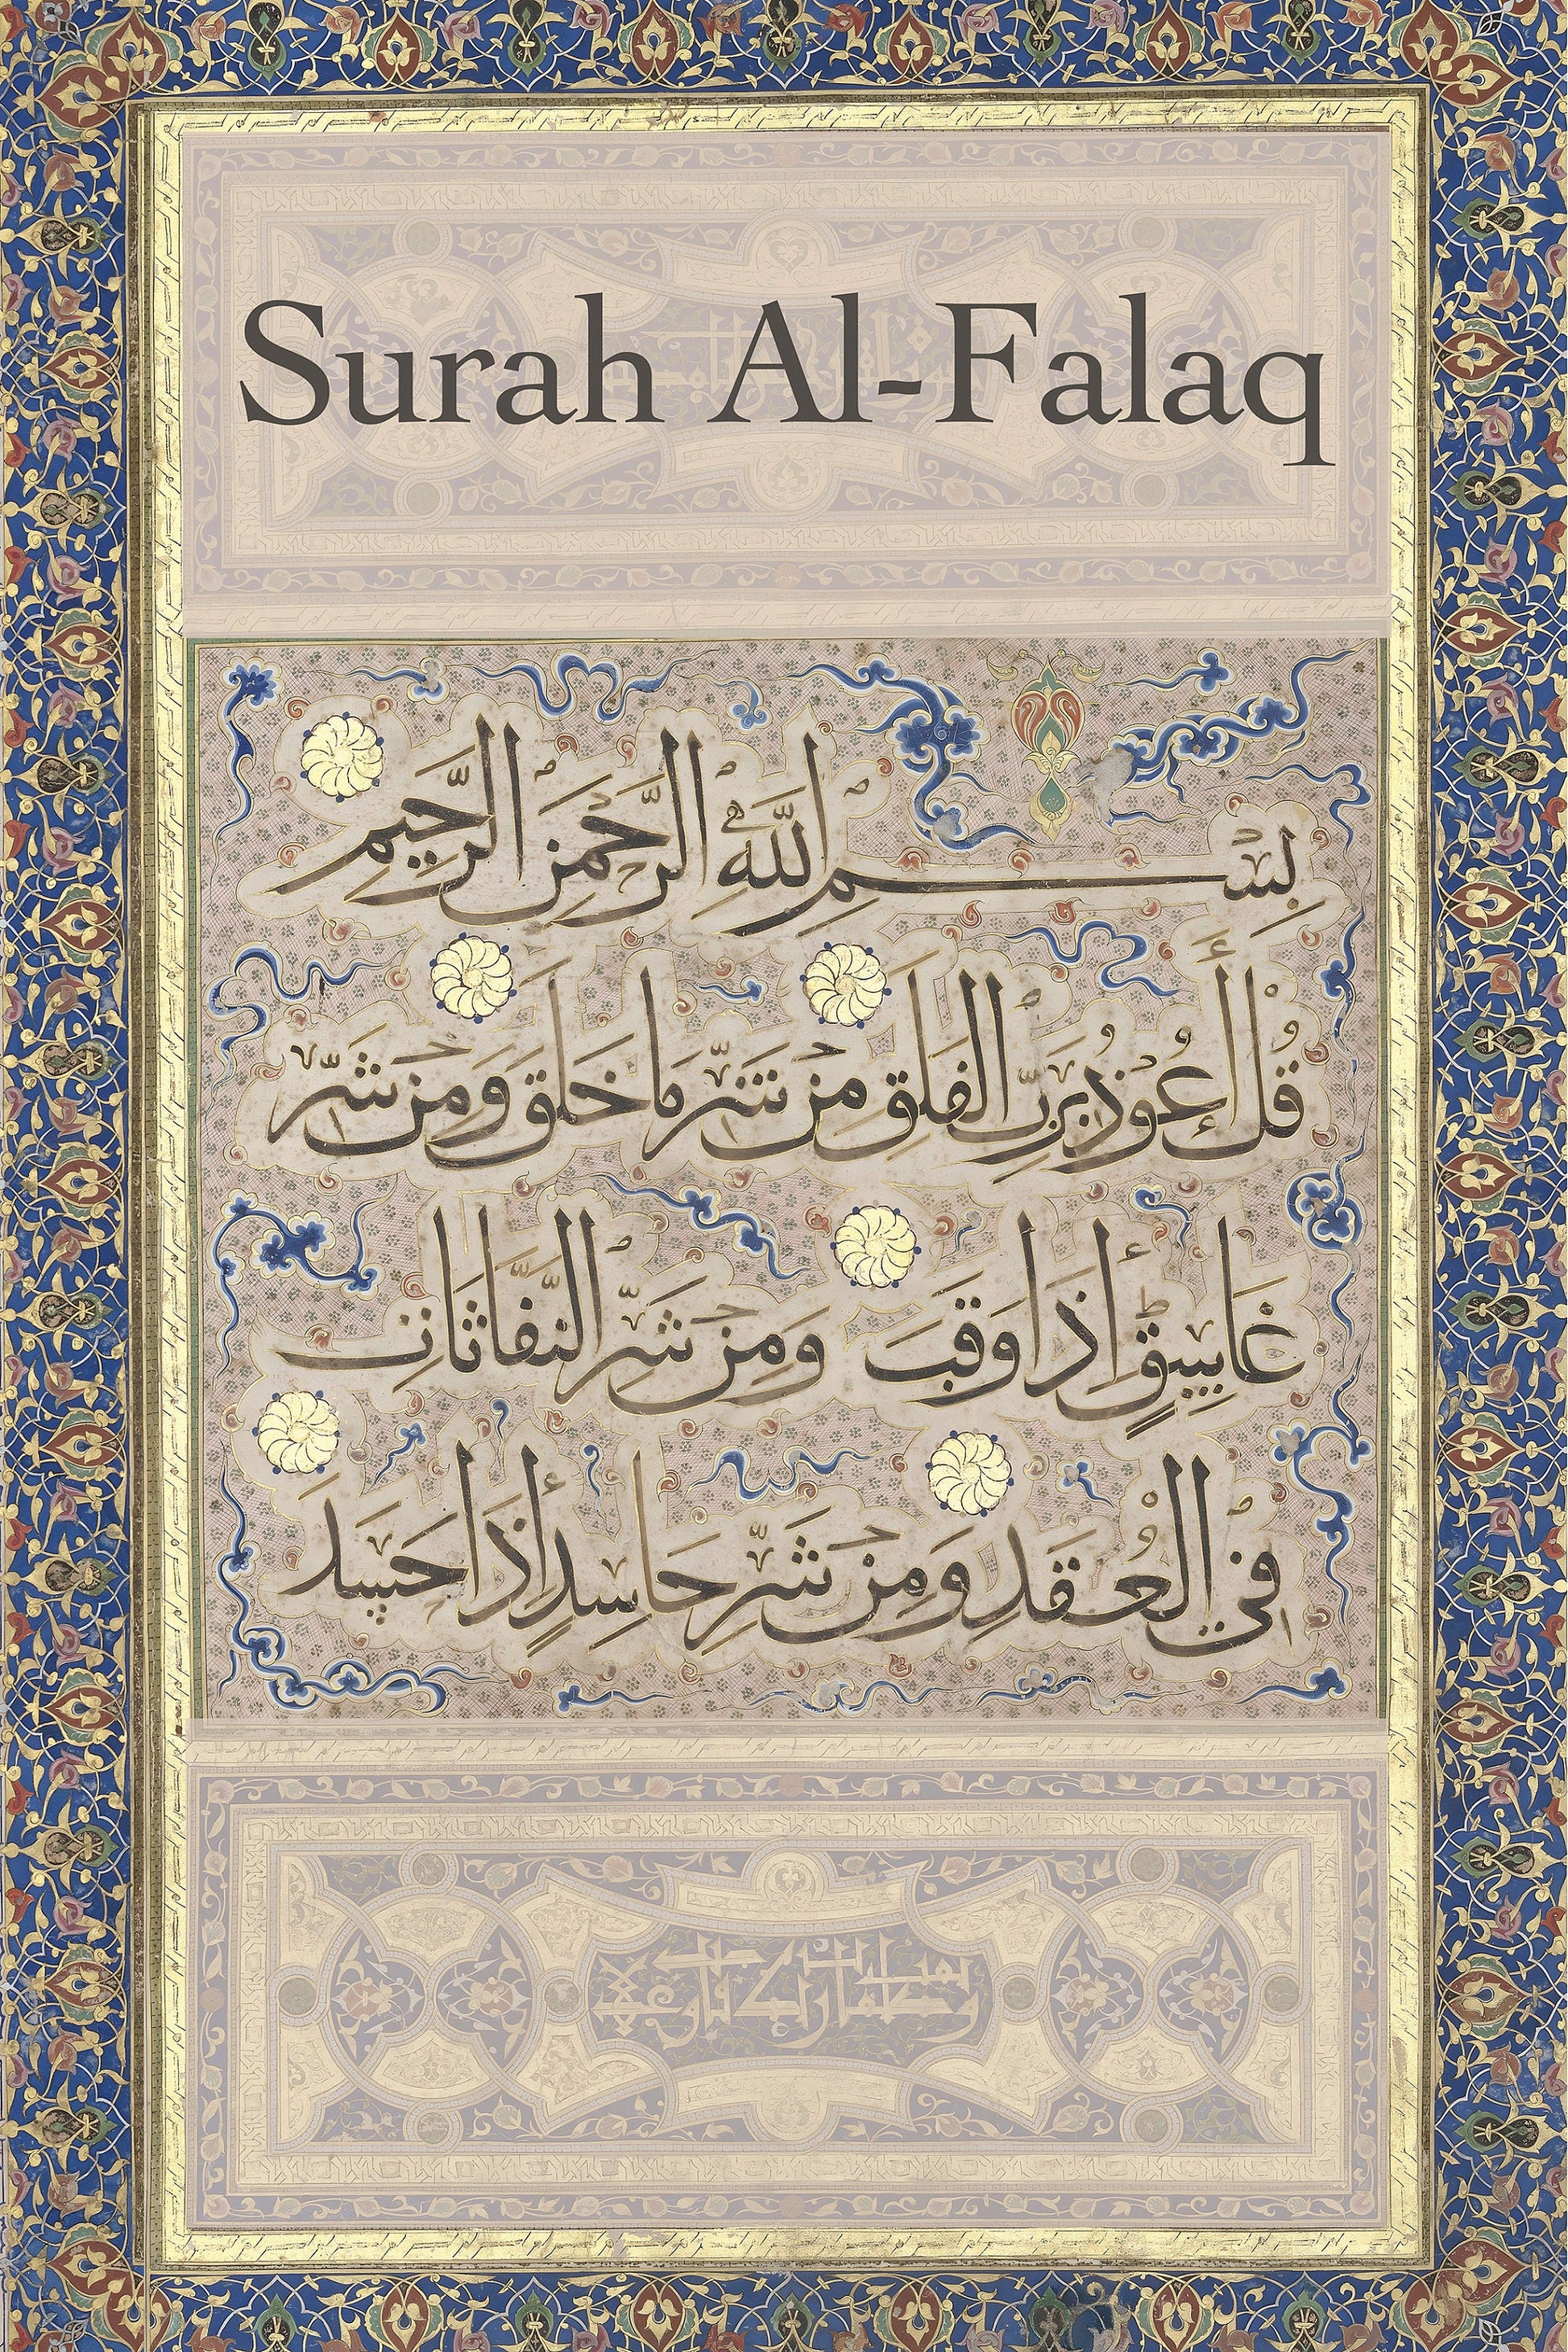 Surah Al-Falaq
بِسْمِ اللهِ الرَّحْمَنِ الرَّحِيمِ
قُلْ أَعُوذُ بِرَبِّ الْفَلَقِ مِنْ شَرِّ مَا خَلَقَ وَمِنْ شَرِّ
غَاسِقٍ إِذَا وَقَبَ وَمِنْ شَرِّ النَّفَّاثَاتِ
فِي الْعُقَدِ وَمِنْ شَرِّ حَاسِدٍ إِذَا حَسَدَ